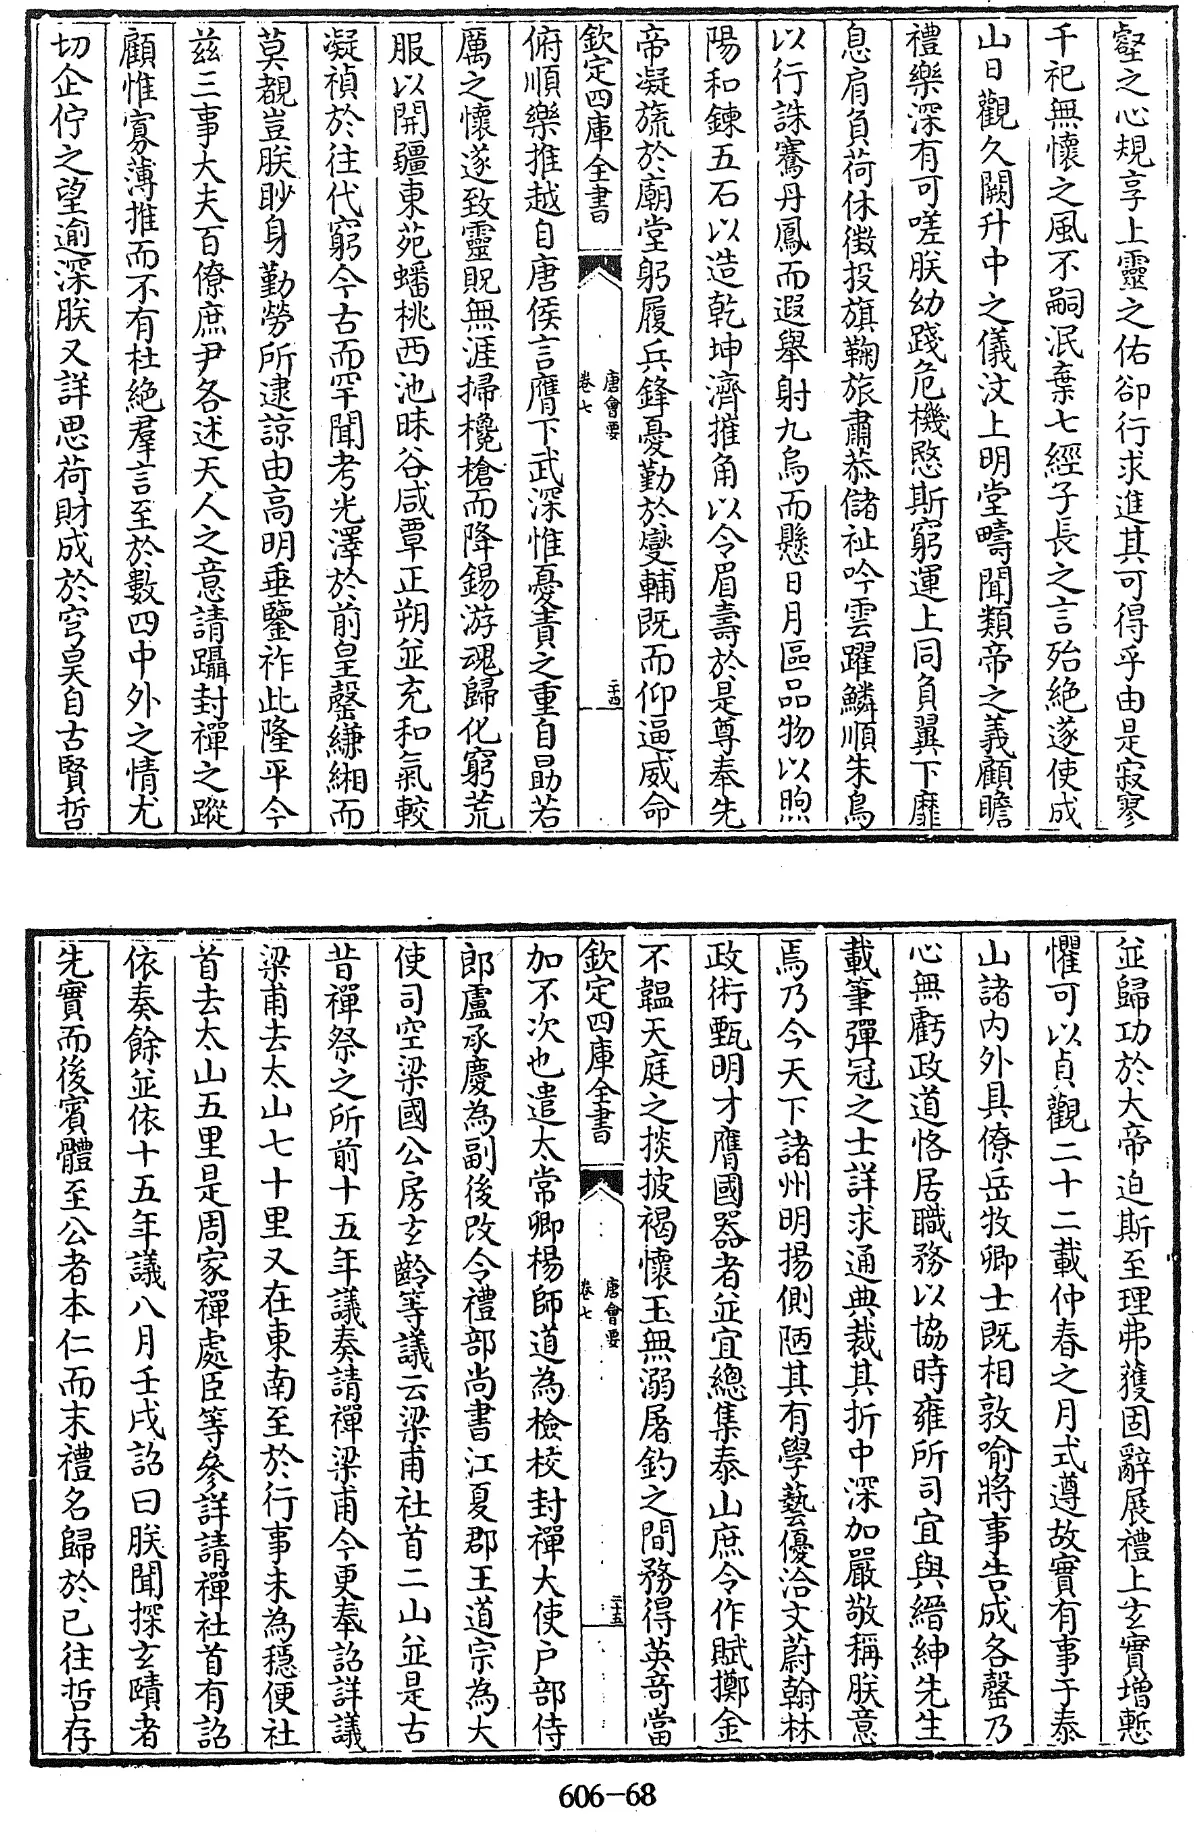 壑之心規享上靈之佑卻行求進其可得乎由是寂寥
千祀無懷之風不嗣泯棄七經子長之言殆絶遂使成
山日觀久闕升中之儀汶上明堂疇聞類帝之義顧瞻
禮樂深有可嗟朕幼踐危機愍斯窮運上同負翼下靡
息肩負荷休徵投旗鞠旅肅恭儲祉吟雲躍鱗順朱鳥
以行誅騫丹鳳而遐舉射九烏而懸日月區品物以煦
陽和鍊五石以造乾坤濟摧角以令眉壽於是尊奉先
帝凝旒於廟堂躬履兵鋒憂勤於燮輔既而仰逼威命
欽定四庫全書
唐會要
卷七
二十四
俯順樂推越自唐侯言膺下武深惟憂責之重自勗若
厲之懷遂致靈貺無涯掃欃槍而降錫游魂歸化窮荒
服以開疆東苑蟠桃西池昧谷咸覃正朔並充和氣較
凝禎於往代窮今古而罕聞考光澤於前皇罄縑緗而
莫覩豈朕眇身勤勞所逮諒由高明垂鑒祚此隆平今
茲三事大夫百僚庶尹各述天人之意請躡封禪之蹤
顧惟寡薄推而不有杜絶羣言至於數四中外之情尤
切企佇之望逾深朕又詳思荷財成於穹昊自古賢哲
並歸功於大帝迫斯至理弗獲固辭展禮上玄實增慙
懼可以貞觀二十二載仲春之月式遵故實有事于泰
山諸内外具僚岳牧卿士既相敦喻將事告成各罄乃
心無虧政道恪居職務以協時雍所司宜與縉紳先生
載筆彈冠之士詳求通典裁其折中深加嚴敬稱朕意
焉乃令天下諸州明揚側陋其有學藝優洽文蔚翰林
政術甄明才膺國器者並宜總集泰山庶令作賦擲金
不韞天庭之掞披褐懷玉無溺屠釣之間務得英奇當
欽定四庫全書
唐會要
卷七
二十五
加不次也遣太常卿楊師道為檢校封禪大使户部侍
郎盧承慶為副後改令禮部尚書江夏郡王道宗為大
使司空梁國公房玄齡等議云梁甫社首二山並是古
昔禪祭之所前十五年議奏請禪梁甫今更奉詔詳議
梁甫去太山七十里又在東南至於行事未為穩便社
首去太山五里是周家禪處臣等參詳請禪社首有詔
依奏餘並依十五年議八月壬戌詔曰朕聞探玄賾者
先實而後賓體至公者本仁而末禮名歸於已往哲存
606-68